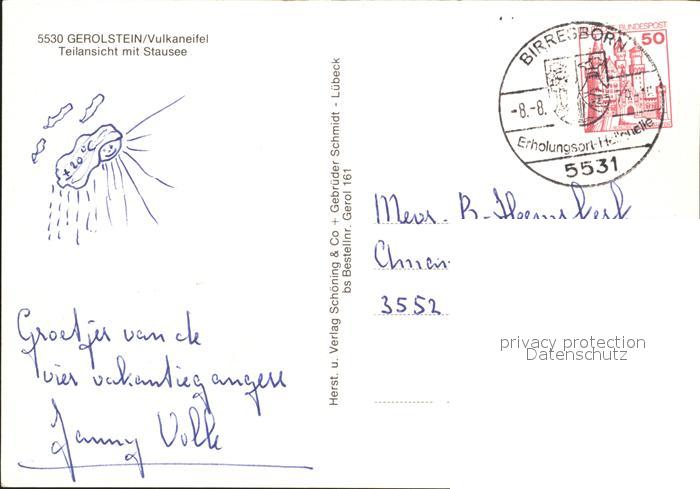 5530 GEROLSTEIN/Vulkaneifel
Teilansicht mit Stausee
+20°C
Groetjes van de
vier vakantiegangers
Janny Volle
Herst. u. Verlag Schöning & Co + Gebrüder Schmidt - Lübeck
bs Bestellnr. Gerol 161
DEUTSCHE BUNDESPOST
50
BIRRESBORN
-8.-8.
Erholungsort-Heilquelle
5531
Mevr. B.
3552
privacy protection
Datenschutz